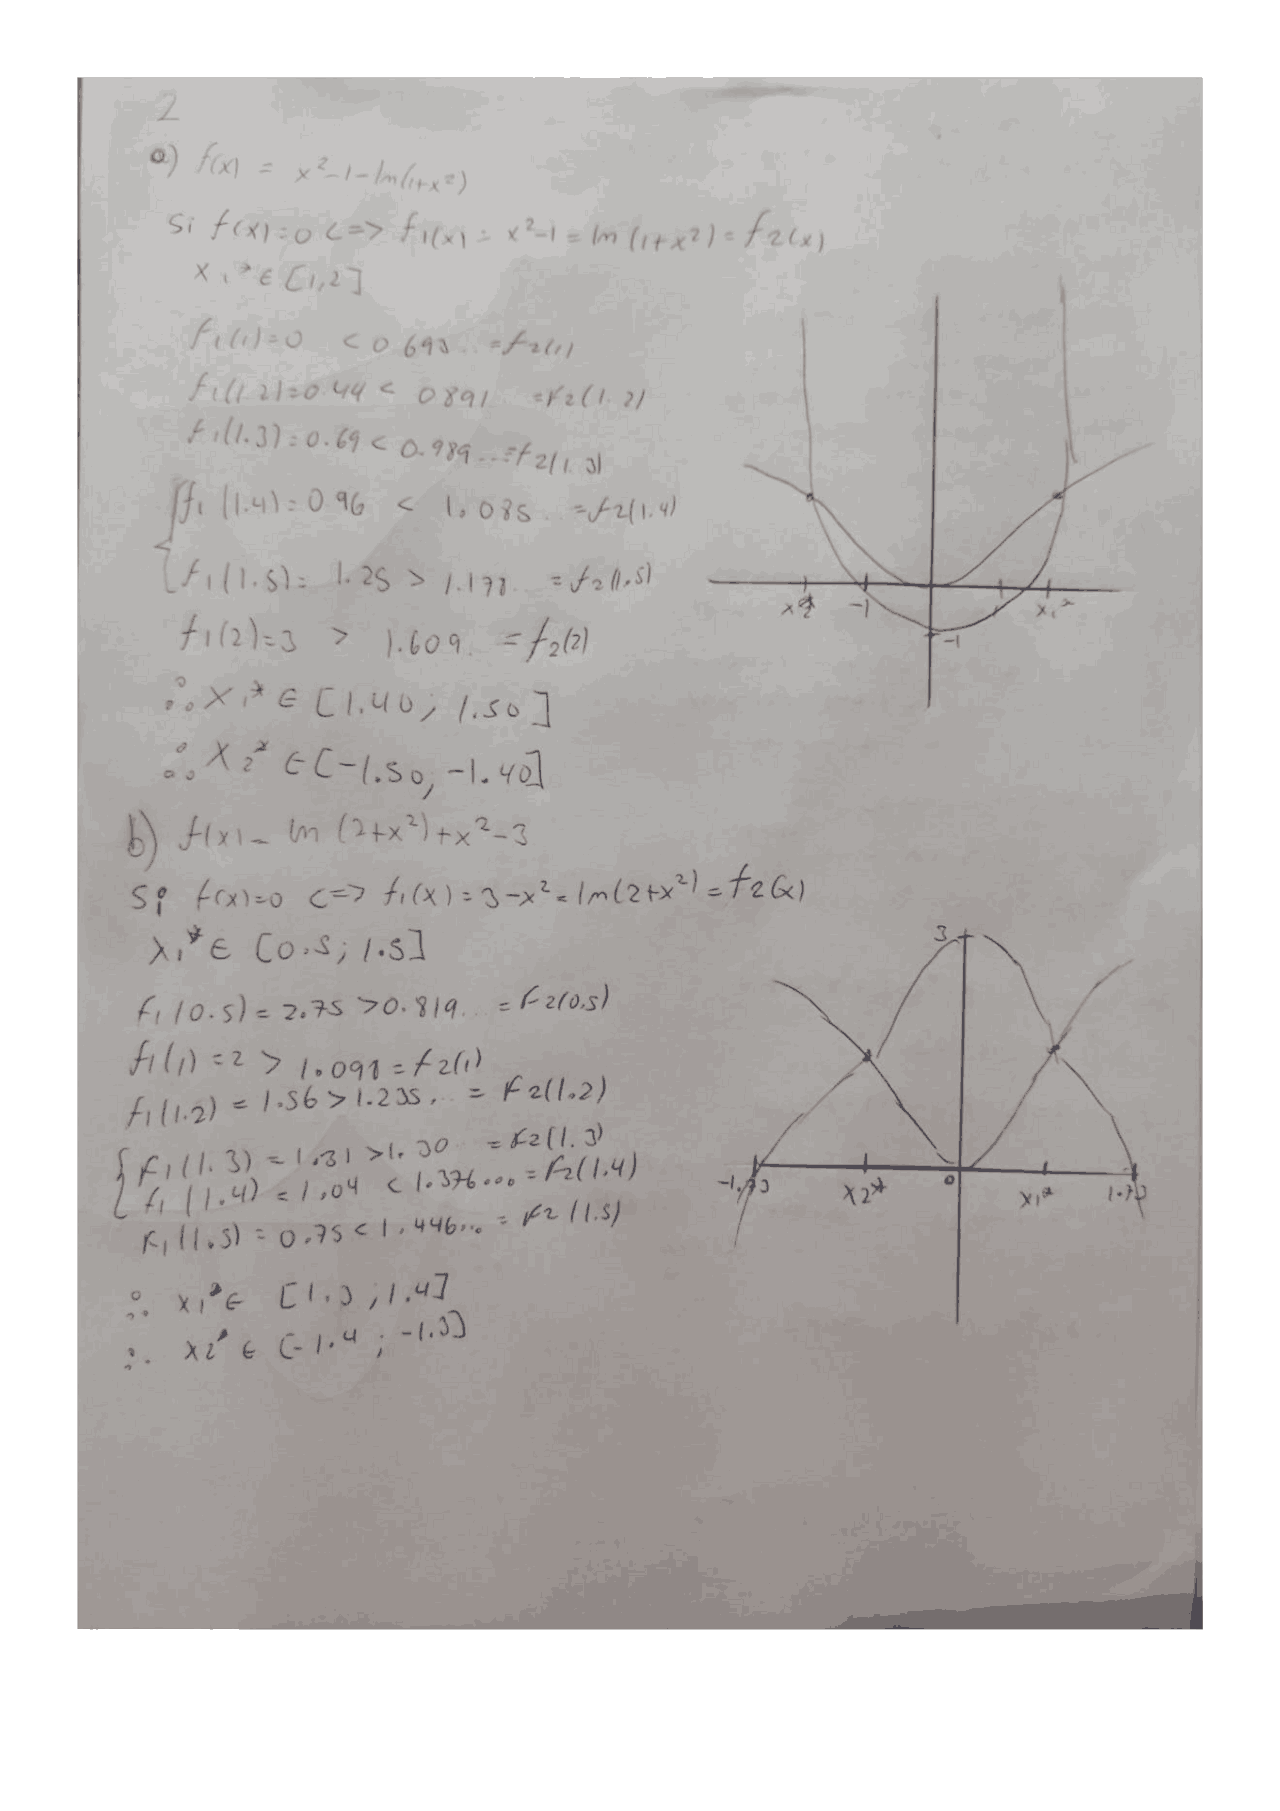 2
a) f(x) = x²-1-ln(1+x²)
Si f(x)=0 <=> f1(x) = x²-1 = ln(1+x²) = f2(x)
x1* ∈ [1,2]
f1(1)=0 < 0.693.. = f2(1)
f1(1.2)=0.44 < 0.891.. = f2(1.2)
f1(1.3)=0.69 < 0.989... = f2(1.3)
f1(1.4)=0.96 < 1.085.. = f2(1.4)
f1(1.5)= 1.25 > 1.178.. = f2(1.5)
f1(2)=3 > 1.609.. = f2(2)
∴ x1* ∈ [1.40; 1.50]
∴ x2* ∈ [-1.50; -1.40]
x2* -1 x1*
-1
b) f(x)= ln (2+x²)+x²-3
Si f(x)=0 <=> f1(x)=3-x² = ln(2+x²) = f2(x)
x1* ∈ [0.5; 1.5]
f1(0.5) = 2.75 > 0.819... = f2(0.5)
f1(1) = 2 > 1.098 = f2(1)
f1(1.2) = 1.56 > 1.235... = f2(1.2)
f1(1.3) = 1.31 > 1.30.. = f2(1.3)
f1(1.4) = 1.04 < 1.376... = f2(1.4)
f1(1.5) = 0.75 < 1.446... = f2(1.5)
∴ x1* ∈ [1.3 ; 1.4]
∴ x2* ∈ [-1.4 ; -1.3]
3
-1.73 x2* 0 x1* 1.73